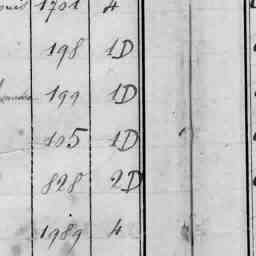 1701 4
198 1D
199 1D
105 1D
828 2D
1989 4